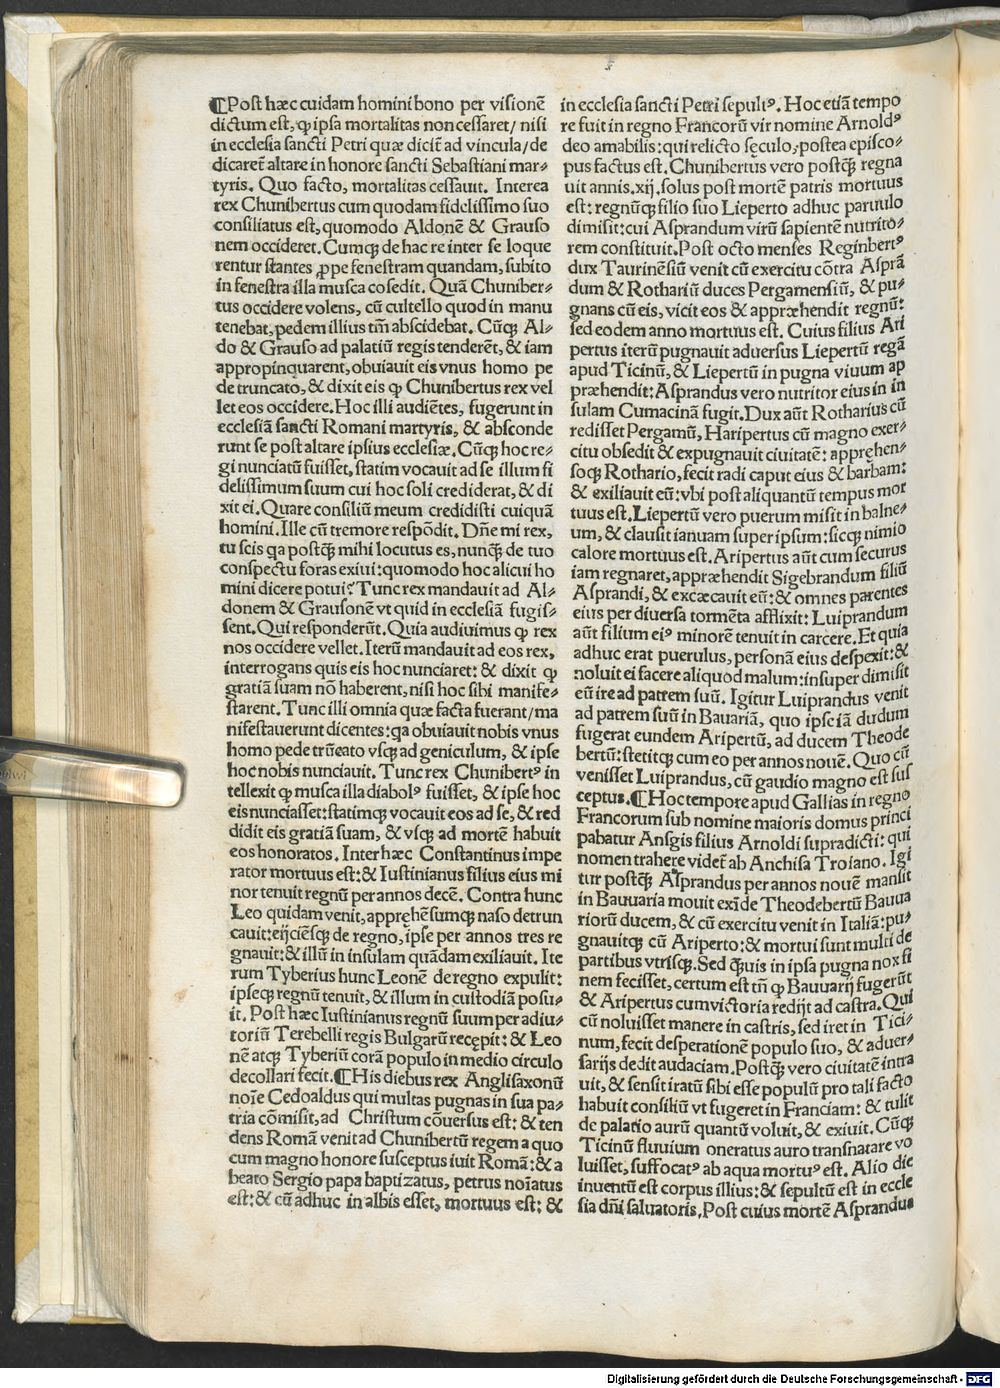 ¶Post hæc cuidam homini bono per visionē
dictum est, ꝙ ipsa mortalitas non cessaret/ nisi
in ecclesia sancti Petri quæ dicit̄ ad vincula/ de
dicaret̄ altare in honore sancti Sebastiani mar⸗
tyris. Quo facto, mortalitas cessauit. Interea
rex Chunibertus cum quodam fidelissimo suo
consiliatus est, quomodo Aldonē & Grauso
nem occideret. Cumqꝫ de hac re inter se loque
rentur stantes ꝓpe fenestram quandam, subito
in fenestra illa musca cōsedit. Quā Chuniber⸗
tus occidere volens, cū cultello quod in manu
tenebat, pedem illius tm̄ abscidebat. Cūqꝫ Al⸗
do & Grauso ad palatiū regis tenderēt, & iam
appropinquarent, obuiauit eis vnus homo pe
de truncato, & dixit eis ꝙ Chunibertus rex vel
let eos occidere. Hoc illi audiētes, fugerunt in
ecclesiā sancti Romani martyris, & absconde
runt se post altare ipsius ecclesiæ. Cūqꝫ hoc re⸗
gi nunciatū fuisset, statim vocauit ad se illum fi
delissimum suum cui hoc soli crediderat, & di
xit ei. Quare consiliū meum credidisti cuiquā
homini. Ille cū tremore respōdit. Dn̄e mi rex,
tu scis qa postꝙ̄ mihi locutus es, nunꝙ̄ de tuo
conspectu foras exiui: quomodo hoc alicui ho
mini dicere potui? Tunc rex mandauit ad Al⸗
donem & Grausonē vt quid in ecclesiā fugis⸗
sent. Qui responderūt. Quia audiuimus ꝙ rex
nos occidere vellet. Iterū mandauit ad eos rex,
interrogans quis eis hoc nunciaret: & dixit ꝙ
gratiā suam nō haberent, nisi hoc sibi manife⸗
starent. Tunc illi omnia quæ facta fuerant/ ma
nifestauerunt dicentes: qa obuiauit nobis vnus
homo pede trūcato vsqꝫ ad geniculum, & ipse
hoc nobis nunciauit. Tunc rex Chunibertꝰ in
tellexit ꝙ musca illa diabolꝰ fuisset, & ipse hoc
eis nunciasset: statimqꝫ vocauit eos ad se, & red
didit eis gratiā suam, & vsqꝫ ad mortē habuit
eos honoratos. Inter hæc Constantinus impe
rator mortuus est: & Iustinianus filius eius mi
nor tenuit regnū per annos decē. Contra hunc
Leo quidam venit, apprȩhēsumqꝫ naso detrun
cauit: eijciēsqꝫ de regno, ipse per annos tres re
gnauit: & illū in insulam quādam exiliauit. Ite
rum Tyberius hunc Leonē de regno expulit:
ipseqꝫ regnū tenuit, & illum in custodiā posu⸗
it. Post hæc Iustinianus regnū suum per adiu⸗
toriū Terebelli regis Bulgarū recȩpit: & Leo
nē atqꝫ Tyberiū corā populo in medio circulo
decollari fecit. ¶His diebus rex Anglisaxonū
noīe Cedoaldus qui multas pugnas in sua pa⸗
tria cōmisit, ad Christum cōuersus est: & ten
dens Romā venit ad Chunibertū regem a quo
cum magno honore susceptus iuit Romā: & a
beato Sergio papa baptizatus, petrus noīatus
est: & cū adhuc in albis esset, mortuus est: &
in ecclesia sancti Petri sepultꝰ. Hoc etiā tempo
re fuit in regno Francorū vir nomine Arnoldꝰ
deo amabilis: qui relicto sȩculo, postea episco⸗
pus factus est. Chunibertus vero postꝙ̄ regna
uit annis.xij.solus post mortē patris mortuus
est: regnūqꝫ filio suo Lieperto adhuc paruulo
dimisit: cui Asprandum virū sapientē nutrito⸗
rem constituit. Post octo menses Reginbertꝰ
dux Taurinēsiū venit cū exercitu cōtra Asprā
dum & Rothariū duces Pergamensiū, & pu⸗
gnans cū eis, vicit eos & appræhendit regnū:
sed eodem anno mortuus est. Cuius filius Ari
pertus iterū pugnauit aduersus Liepertū regā
apud Ticinū, & Liepertū in pugna viuum ap
præhendit: Asprandus vero nutritor eius in in
sulam Cumacinā fugit. Dux aūt Rotharius cū
redisset Pergamū, Haripertus cū magno exer⸗
citu obsedit & expugnauit ciuitatē: apprȩhen⸗
soqꝫ Rothario, fecit radi caput eius & barbam:
& exiliauit eū: vbi post aliquantū tempus mor
tuus est. Liepertū vero puerum misit in balne⸗
um, & clausit ianuam super ipsum: sicqꝫ nimio
calore mortuus est. Aripertus aūt cum securus
iam regnaret, appræhendit Sigebrandum filiū
Asprandi, & excæcauit eū: & omnes parentes
eius per diuersa tormēta afflixit: Luiprandum
aūt filium eiꝰ minorē tenuit in carcere. Et quia
adhuc erat puerulus, personā eius despexit: &
noluit ei facere aliquod malum: insuper dimisit
eū ire ad patrem suū. Igitur Luiprandus venit
ad patrem suū in Bauariā, quo ipse iā dudum
fugerat eundem Aripertū, ad ducem Theode
bertū: stetitqꝫ cum eo per annos nouē. Quo cū
venisset Luiprandus, cū gaudio magno est sus
ceptus. ¶Hoc tempore apud Gallias in regno
Francorum sub nomine maioris domus princi
pabatur Ansgis filius Arnoldi supradicti: qui
nomen trahere videt̄ ab Anchisa Troiano. Igi
tur postꝙ̄ Asprandus per annos nouē mansit
in Bauuaria mouit exīde Theodebertū Bauua
riorū ducem, & cū exercitu venit in Italiā: pu⸗
gnauitqꝫ cū Ariperto: & mortui sunt multi de
partibus vtrisqꝫ. Sed ꝙ̄uis in ipsa pugna nox fi
nem fecisset, certum est tn̄ ꝙ Bauuarij fugerūt
& Aripertus cum victoria redijt ad castra. Qui
cū noluisset manere in castris, sed iret in Tici⸗
num, fecit desperationē populo suo, & aduer⸗
sarijs dedit audaciam. Postꝙ̄ vero ciuitatē intra
uit, & sensit iratū sibi esse populū pro tali facto
habuit consiliū vt fugeret in Franciam: & tulit
de palatio aurū quantū voluit, & exiuit. Cūqꝫ
Ticinū fluuium oneratus auro transnatare vo
luisset, suffocatꝰ ab aqua mortuꝰ est. Alio die
inuentū est corpus illius: & sepultū est in eccle
sia dn̄i saluatoris. Post cuius mortē Asprandus
Digitalisierung gefördert durch die Deutsche Forschungsgemeinschaft - DFG